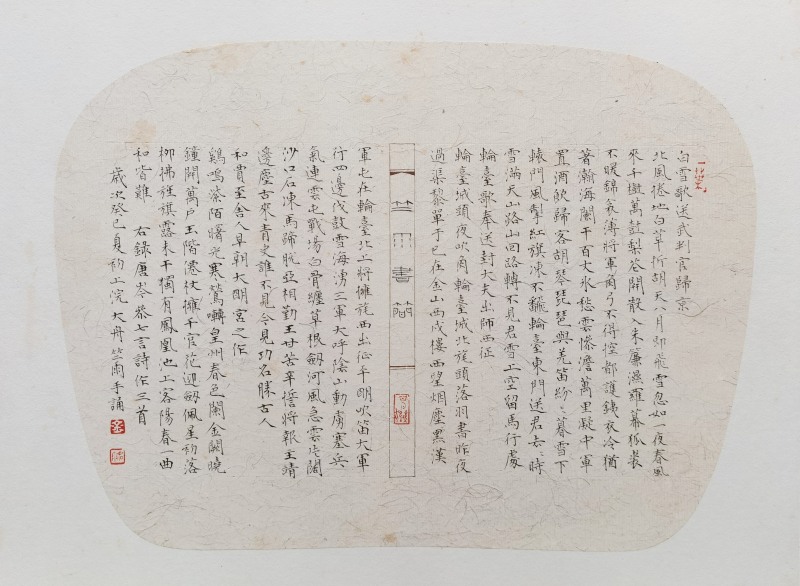 白雪歌送武判官歸京
北風捲地白草折胡天八月即飛雪忽如一夜春風
來千樹萬樹梨花開散入朱簾濕羅幕狐裘
不暖錦衾薄將軍角弓不得控都護鐵衣冷猶
著瀚海闌干百丈冰愁雲慘澹萬里凝中軍
置酒飲歸客胡琴琵琶與羌笛紛〻暮雪下
轅門風掣紅旗凍不飜輪臺東門送君去〻時
雪滿天山路山回路轉不見君雪上空留馬行處
輪臺歌奉送封大夫出師西征
輪臺城頭夜吹角輪臺城北旄頭落羽書昨夜
過渠黎單于已在金山西戍樓西望烟塵黑漢
竺雨書簡
軍屯在輪臺北上將擁旄西出征平明吹笛大軍
行四邊伐鼓雪海湧三軍大呼陰山動虜塞兵
氣連雲屯戰場白骨纏草根劍河風急雲片闊
沙口石凍馬蹄脫亞相勤王甘苦辛誓將報主靖
邊塵古來青史誰不見今見功名勝古人
和賈至舍人早朝大明宮之作
鷄鳴紫陌曙光寒鶯囀皇州春色闌金闕曉
鐘開萬戶玉階僊仗擁千官花迎劍佩星初落
柳拂旌旗露未干獨有鳳凰池上客陽春一曲
和皆難 右錄唐岑參七言詩作三首
歲次癸巳夏初上浣 大丹竺雨手誦